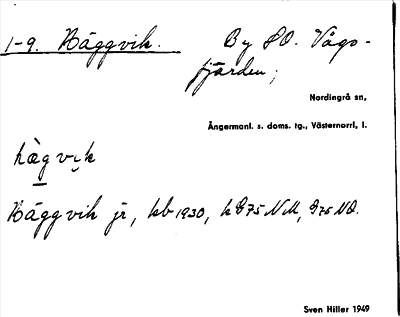 1-9. Häggvik. By SO. Vågs-
fjärden;
Nordingrå sn,
Ångermanl. s. doms. tg., Västernorrl. l.
hægvik
Häggvik jr, kb 1930, k G75 NM, G75 NO.
Sven Hiller 1949